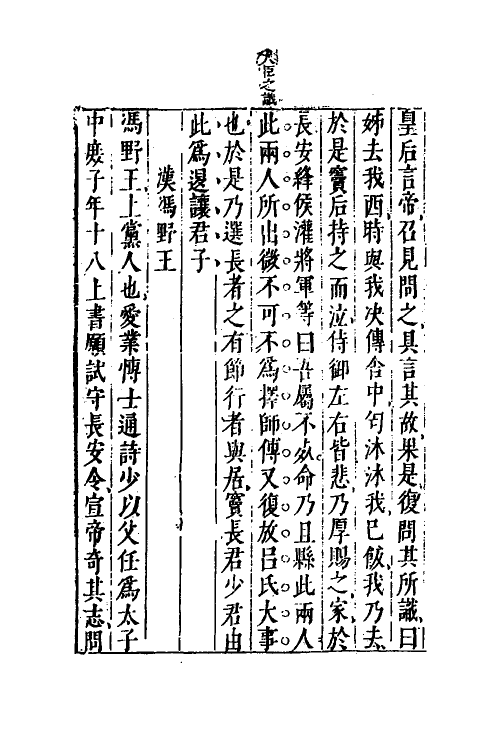 大臣之識
皇后言帝召見問之具言其故果是復問其所識曰
姊去我西時與我决傳舍中匄沐沐我已飯我乃去
於是竇后持之而泣侍御左右皆悲乃厚賜之家於
長安絳侯灌將軍等曰吾屬不死命乃且縣此兩人
此兩人所出微不可不爲擇師傅又復放呂氏大事
也於是乃選長者之有節行者與居竇長君少君由
此爲退讓君子
漢馮野王
馮野王上黨人也受業博士通詩少以父任爲太子
中庶子年十八上書願試守長安令宣帝奇其志問